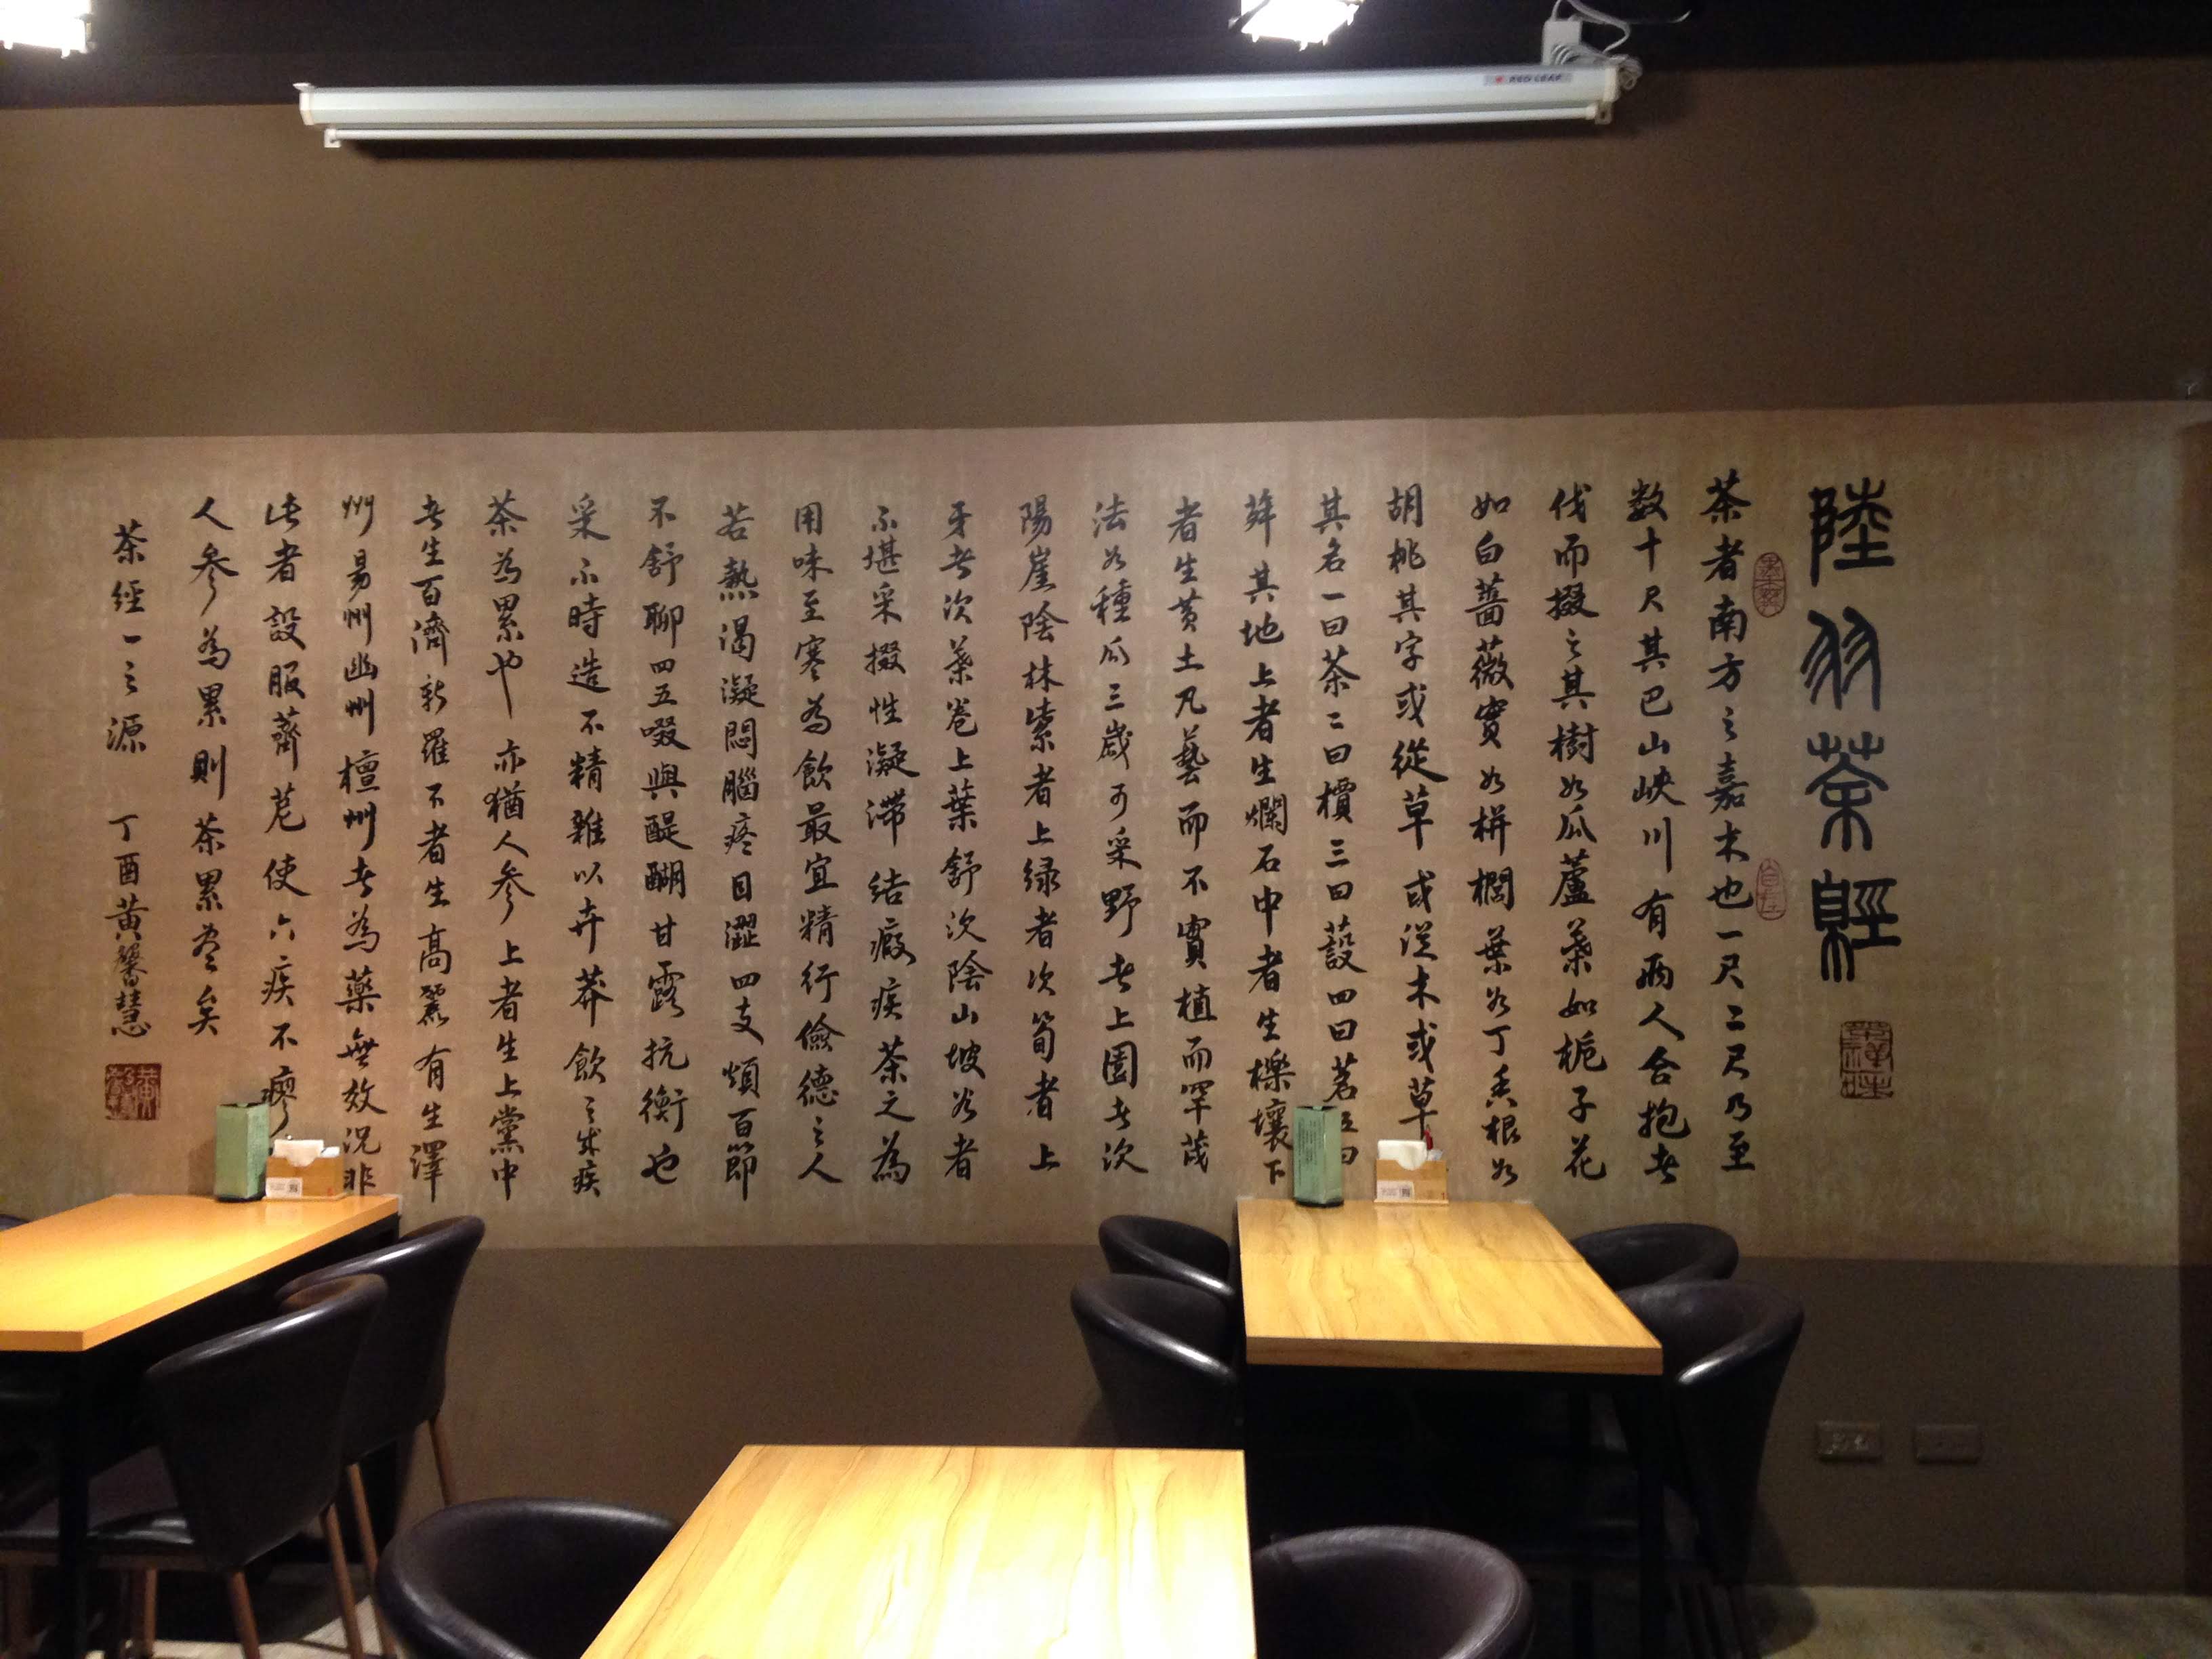 陸羽茶經
茶者南方之嘉木也一尺二尺乃至
数十尺其巴山峽川有兩人合抱者
伐而掇之其樹如瓜蘆葉如梔子花
如白薔薇實如栟櫚葉如丁香根如
胡桃其字或從草或從木或草
其名一曰茶二曰檟三曰蔎四曰茗五曰
荈其地上者生爛石中者生櫟壤下
者生黄土凡藝而不實植而罕茂
法如種瓜三歲可采野者上園者次
陽崖陰林紫者上绿者次筍者上
牙者次葉卷上葉舒次陰山坡谷者
不堪采掇性凝滯結瘕疾茶之為
用味至寒為飲最宜精行儉德之人
若熱渴凝悶腦疼目澀四支煩百節
不舒聊四五啜與醍醐甘露抗衡也
采不時造不精雜以卉莽飲之成疾
茶為累也亦猶人參上者生上黨中
者生百濟新羅下者生高麗有生澤
州易州幽州檀州者為藥無效況非
此者設服薺苨使六疾不瘳
人參為累則茶累盡矣
茶經一之源 丁酉黄馨慧
RED LEAF